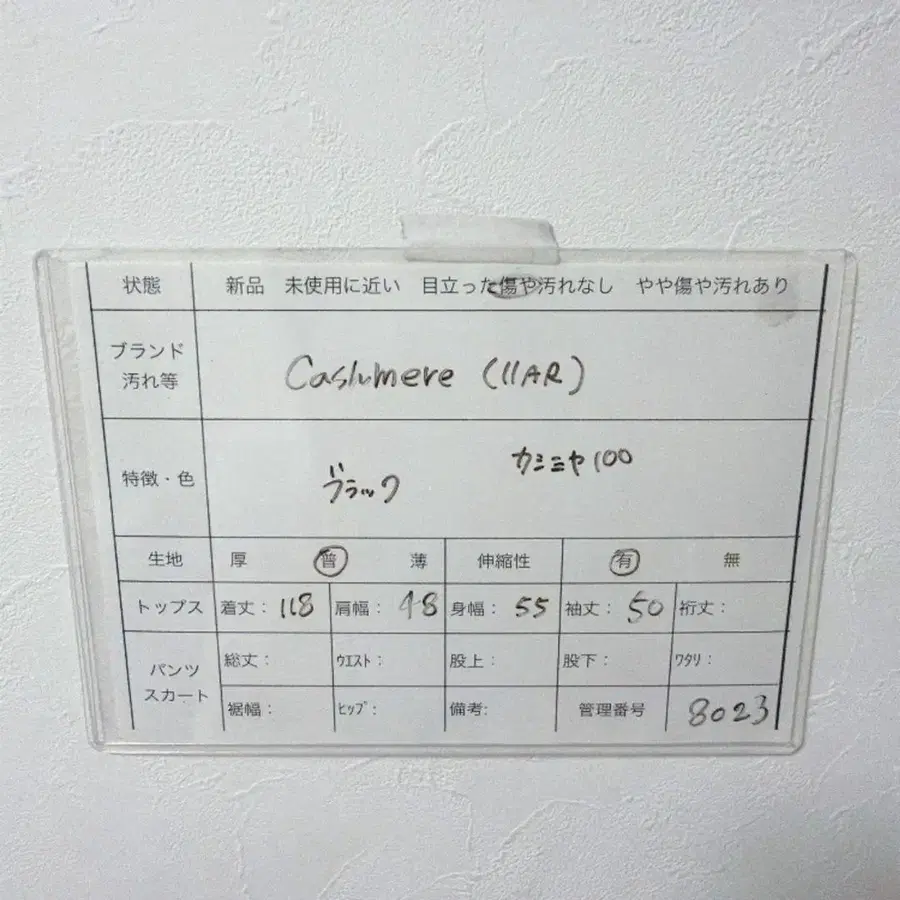 状態 新品 未使用に近い 目立った傷や汚れなし やや傷や汚れあり
ブランド
汚れ等
Cashmere (11AR)
特徴・色 ブラック カシミヤ100
生地 厚 普 薄 伸縮性 有 無
トップス 着丈: 118 肩幅: 48 身幅: 55 袖丈: 50 裄丈:
パンツ
スカート
総丈: ウエスト: 股上: 股下: ワタリ:
裾幅: ヒップ: 備考: 管理番号 8023